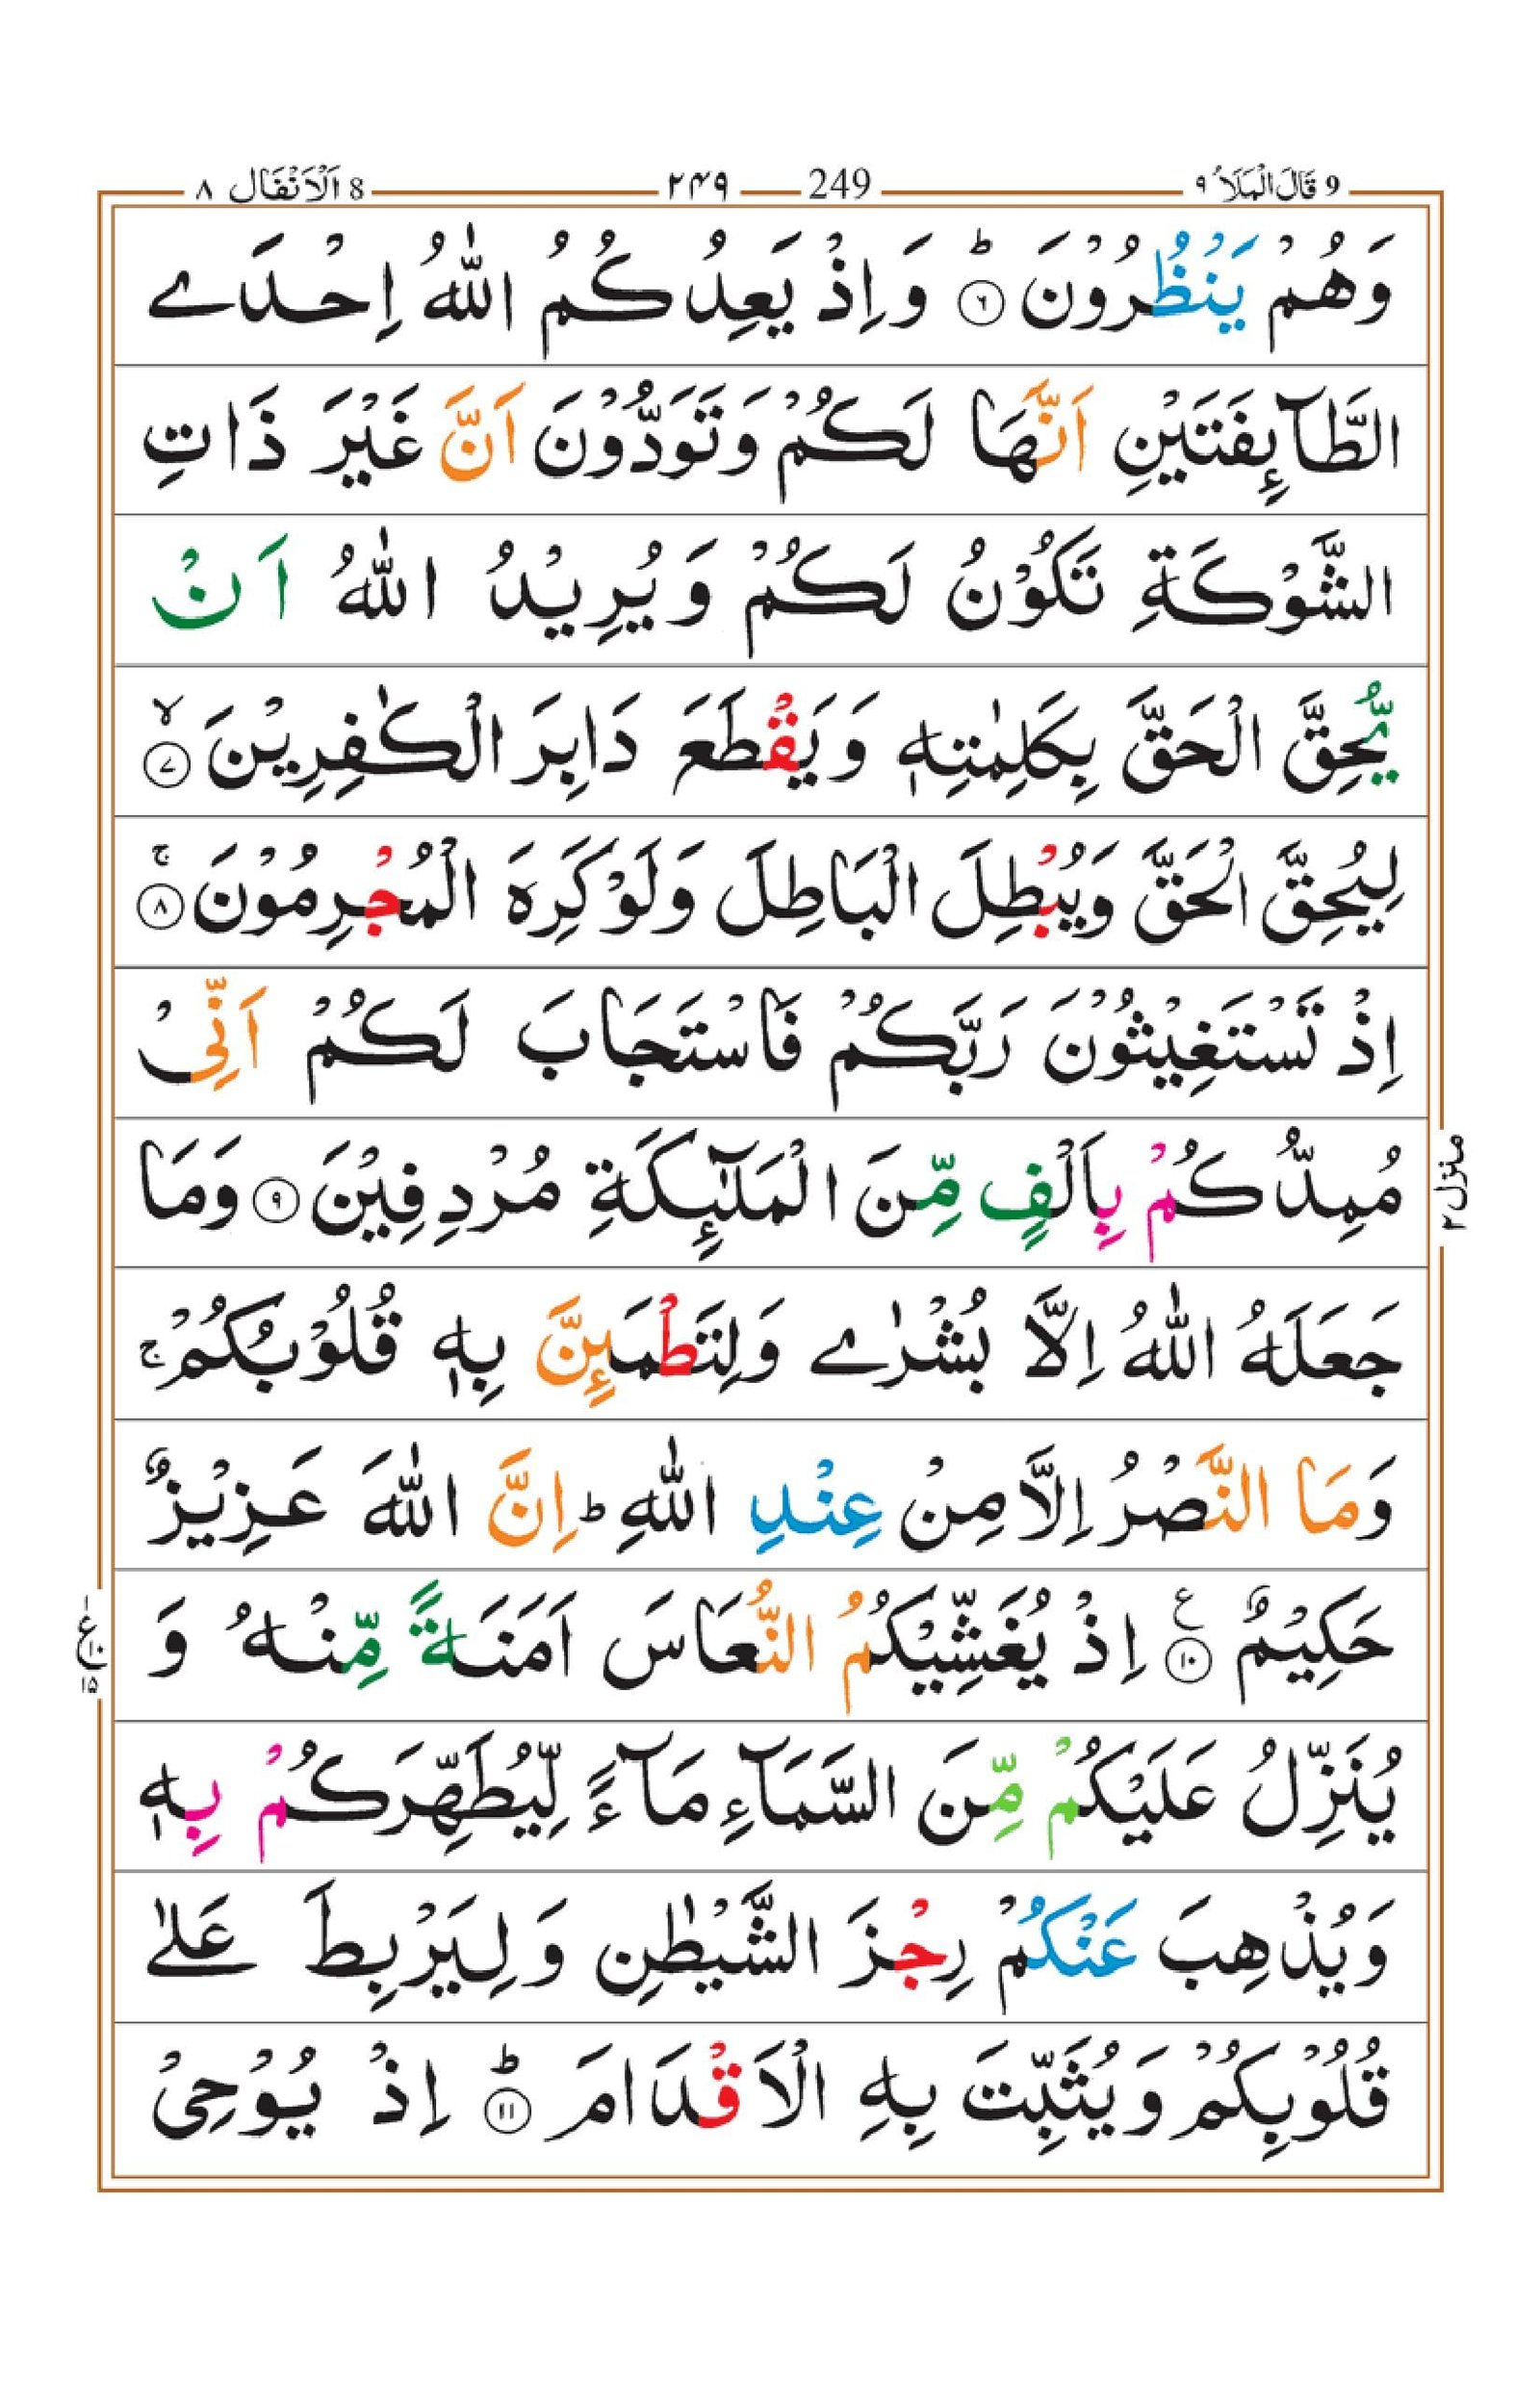 9 قَالَ الْمَلَاُ ٩ 249 ٢٤٩ 8 اَلْاَنْفَال ٨
وَهُمْ يَنْظُرُوْنَ ؕ ﴿٦﴾ وَاِذْ يَعِدُكُمُ اللّٰهُ اِحْدَے
الطَّآئِفَتَيْنِ اَنَّهَا لَكُمْ وَتَوَدُّوْنَ اَنَّ غَيْرَ ذَاتِ
الشَّوْكَةِ تَكُوْنُ لَكُمْ وَيُرِيْدُ اللّٰهُ اَنْ
يُّحِقَّ الْحَقَّ بِكَلِمٰتِهٖ وَيَقْطَعَ دَابِرَ الْكٰفِرِيْنَ ۙ ﴿٧﴾
لِيُحِقَّ الْحَقَّ وَيُبْطِلَ الْبَاطِلَ وَلَوْ كَرِهَ الْمُجْرِمُوْنَ ۚ ﴿٨﴾
اِذْ تَسْتَغِيْثُوْنَ رَبَّكُمْ فَاسْتَجَابَ لَكُمْ اَنِّىْ
مُمِدُّكُمْ بِاَلْفٍ مِّنَ الْمَلٰٓئِكَةِ مُرْدِفِيْنَ ﴿٩﴾ وَمَا
جَعَلَهُ اللّٰهُ اِلَّا بُشْرٰے وَلِتَطْمَئِنَّ بِهٖ قُلُوْبُكُمْ ۚ
وَمَا النَّصْرُ اِلَّا مِنْ عِنْدِ اللّٰهِ ؕ اِنَّ اللّٰهَ عَزِيْزٌ
حَكِيْمٌ ﴿١٠﴾ ع اِذْ يُغَشِّيْكُمُ النُّعَاسَ اَمَنَةً مِّنْهُ وَ
يُنَزِّلُ عَلَيْكُمْ مِّنَ السَّمَآءِ مَآءً لِّيُطَهِّرَكُمْ بِهٖ
وَيُذْهِبَ عَنْكُمْ رِجْزَ الشَّيْطٰنِ وَلِيَرْبِطَ عَلٰى
قُلُوْبِكُمْ وَيُثَبِّتَ بِهِ الْاَقْدَامَ ؕ ﴿١١﴾ اِذْ يُوْحِىْ
منزل ٢
ع ١٠ ١٥